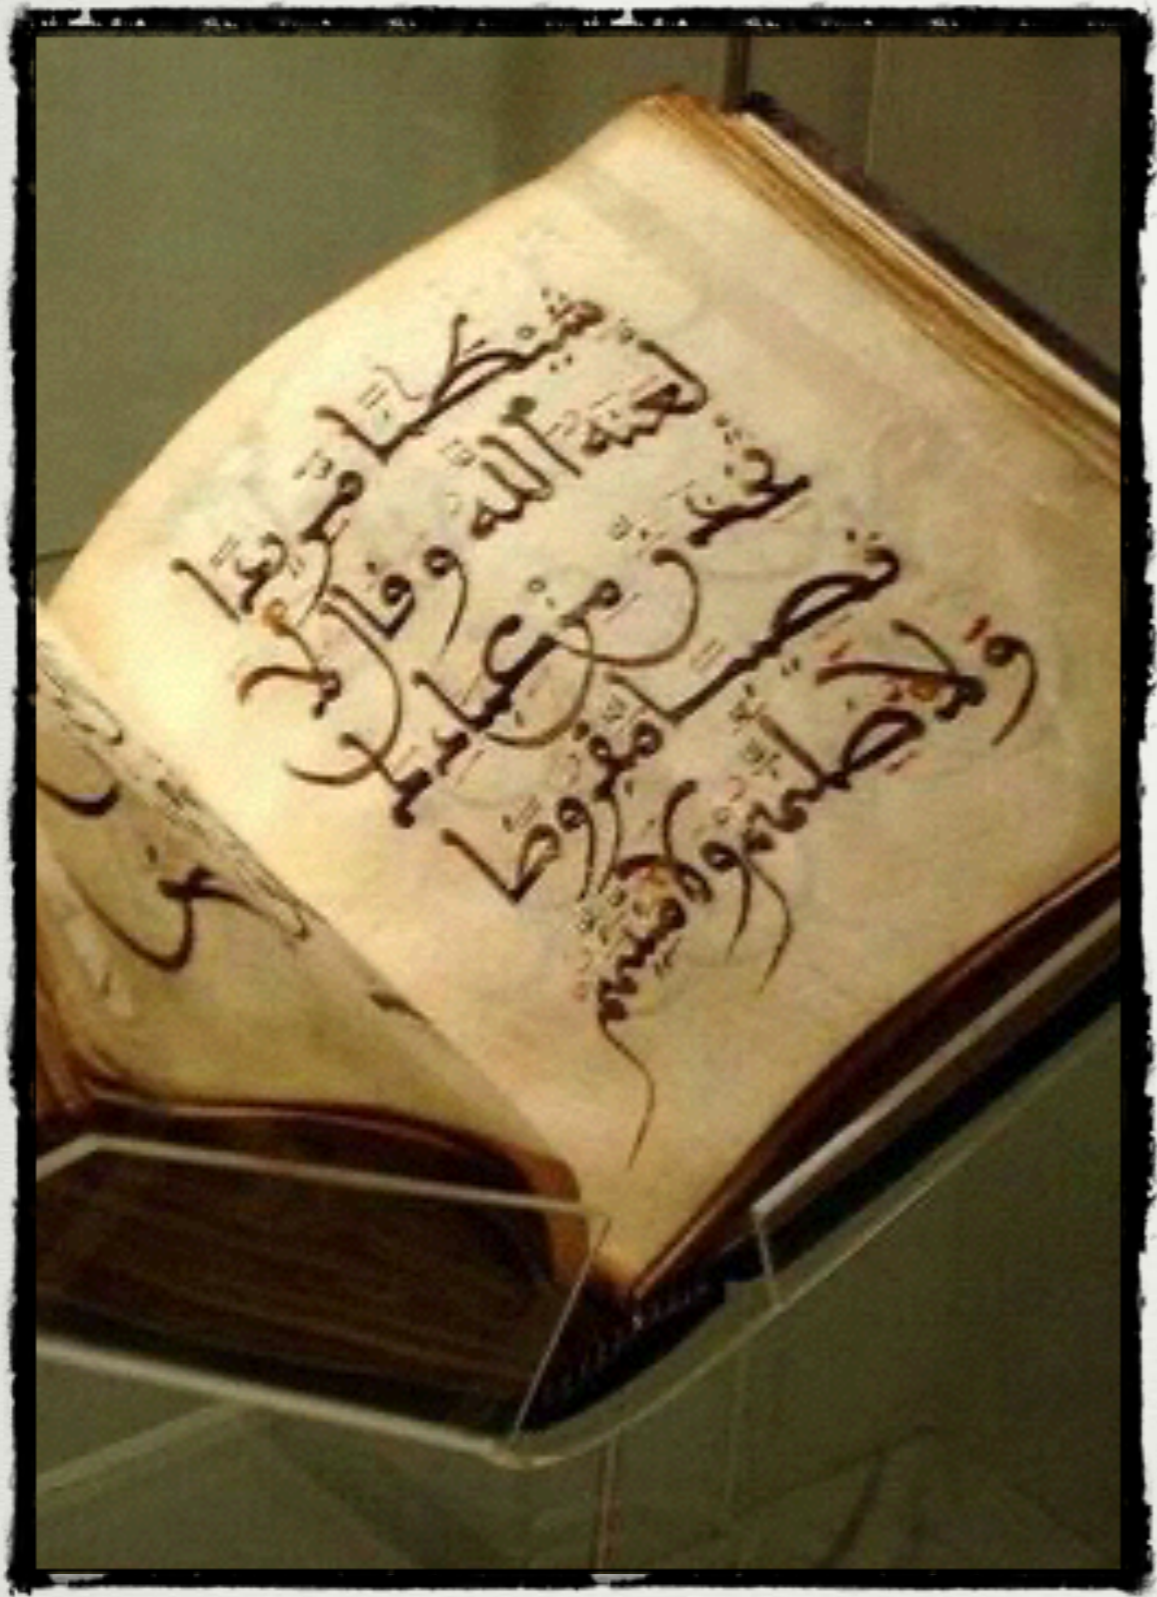 شَيْطَٰنًا مَّرِيدًا
لَّعَنَهُ ٱللَّهُ وَقَالَ لَأَ
تَّخِذَنَّ مِنْ عِبَادِكَ
نَصِيبًا مَّفْرُوضًا
وَلَأُضِلَّنَّهُمْ وَلَأُمَنِّيَنَّهُمْ